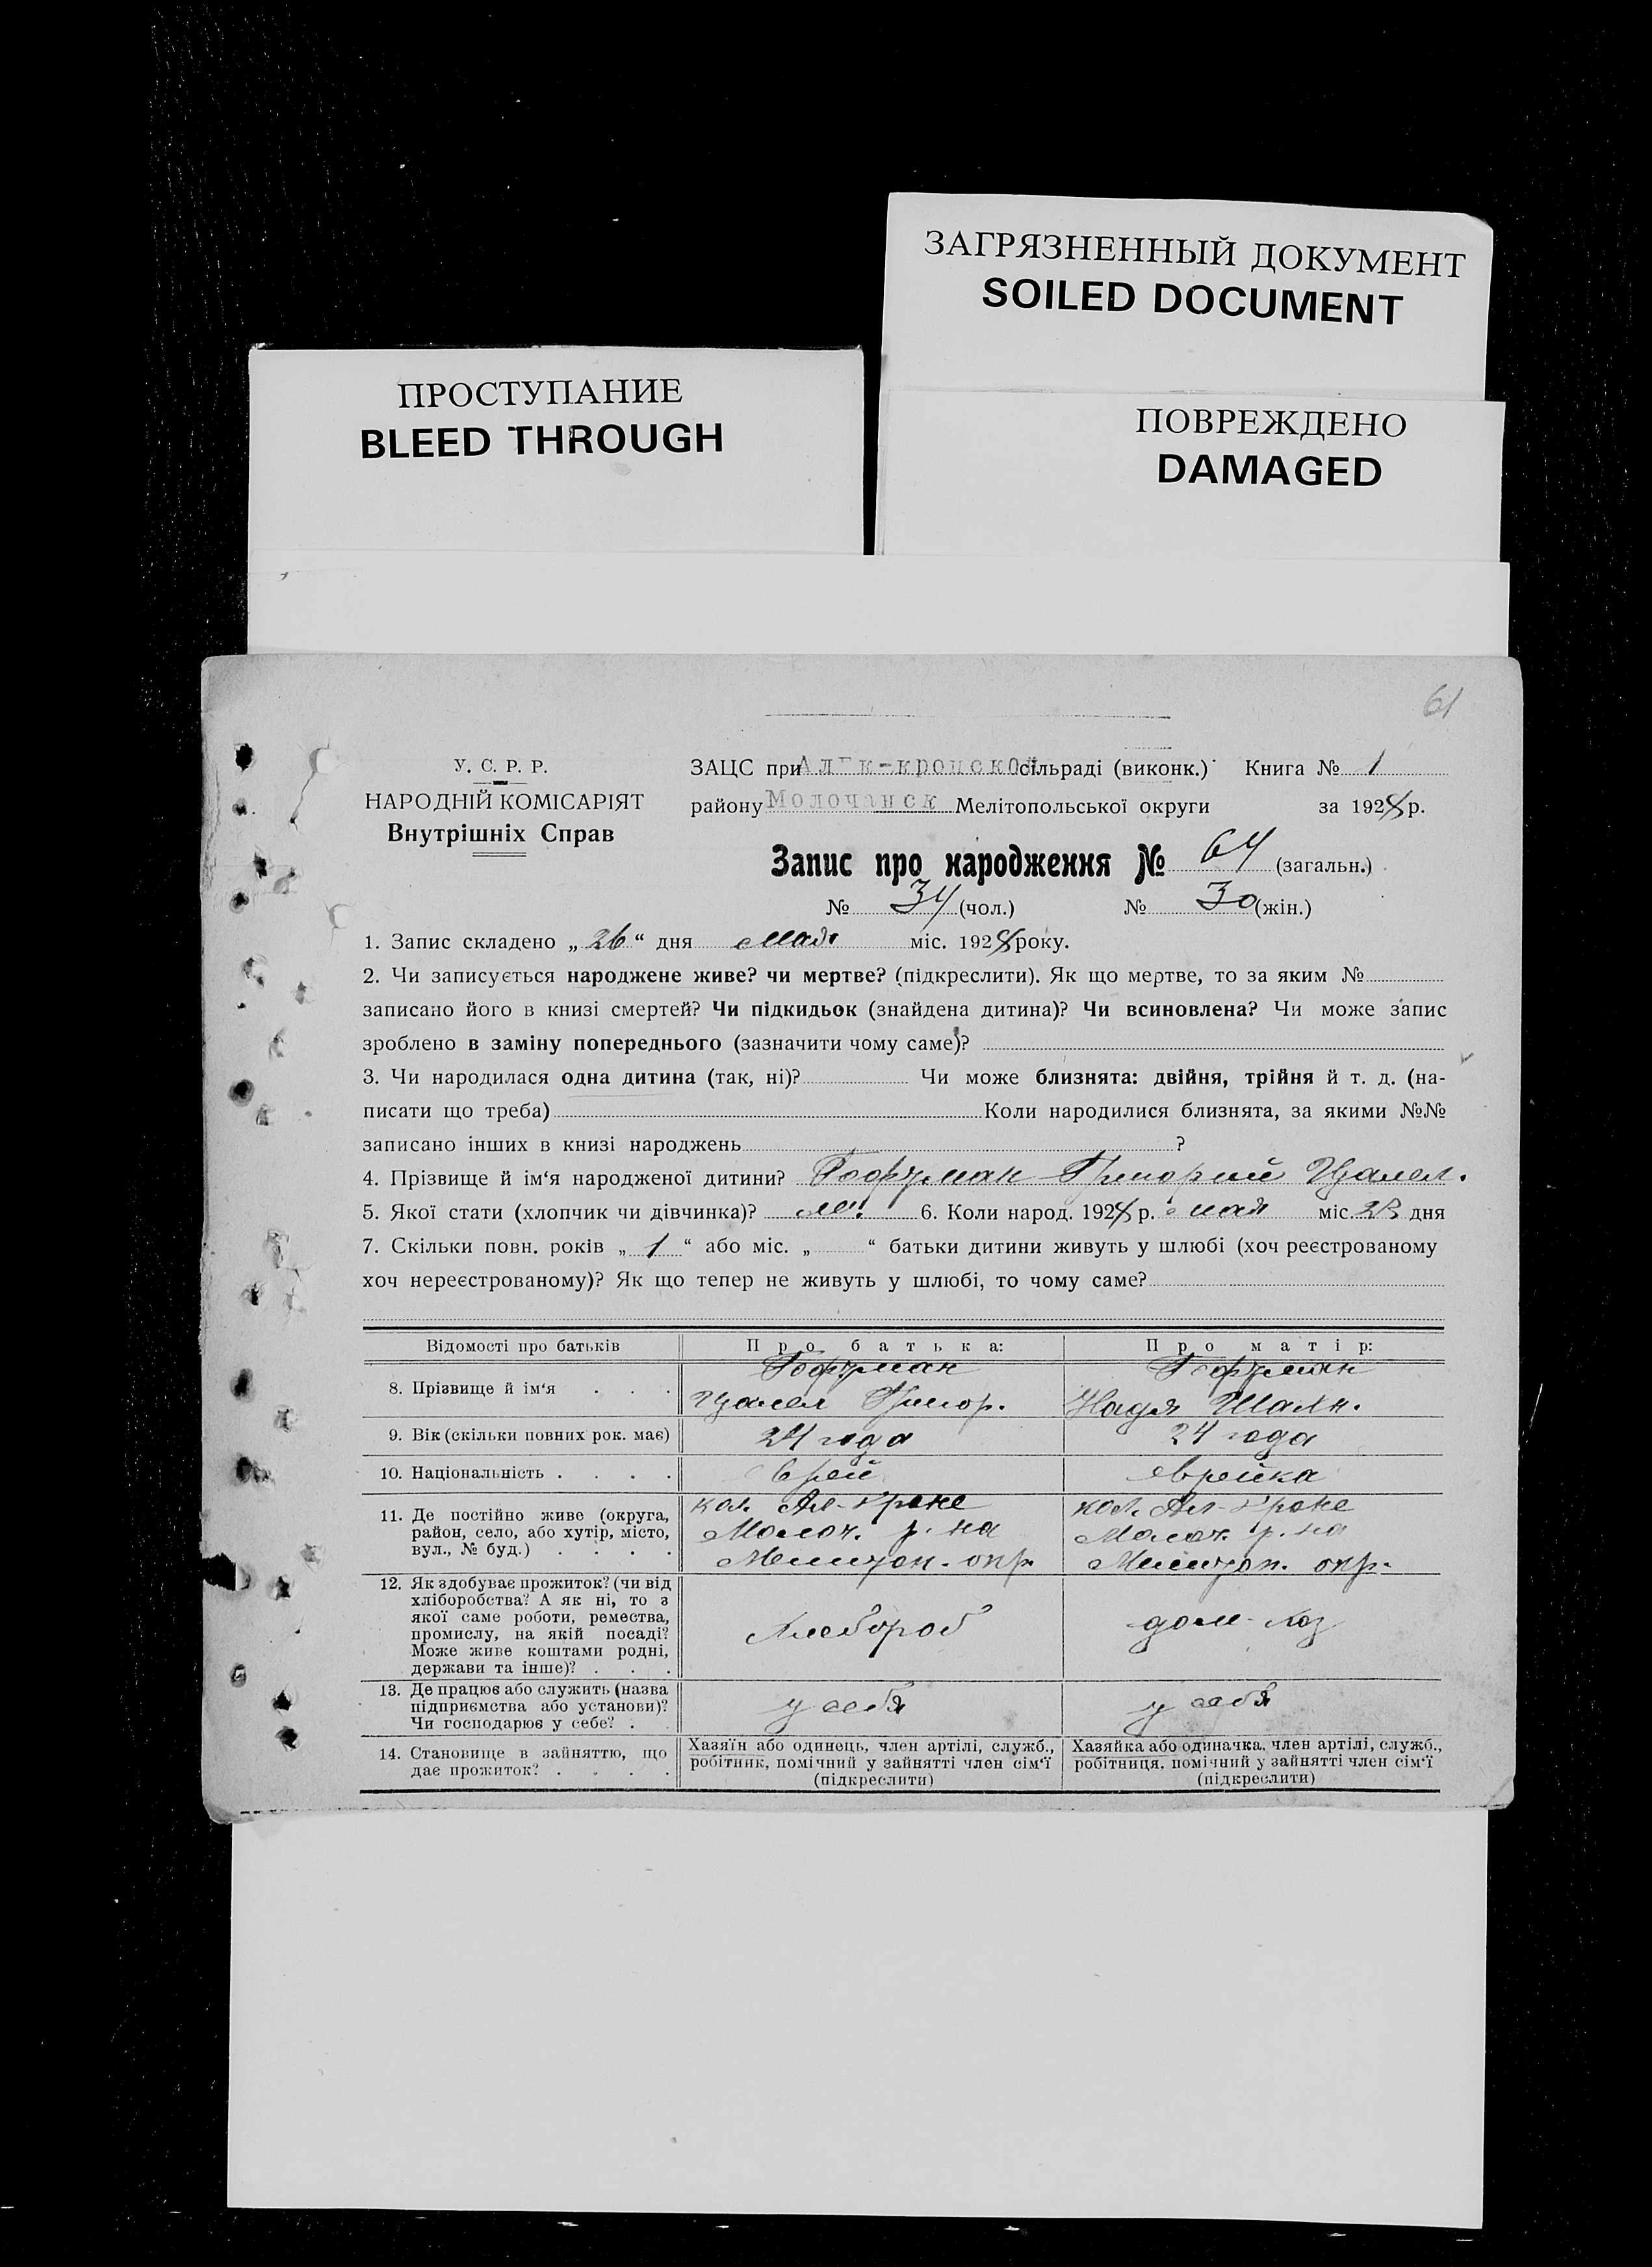 ЗАГРЯЗНЕННЫЙ ДОКУМЕНТ
SOILED DOCUMENT
ПРОСТУПАНИЕ
BLEED THROUGH
ПОВРЕЖДЕНО
DAMAGED
61
У. С. Р. Р.
НАРОДНІЙ КОМІСАРІЯТ
Внутрішніх Справ
ЗАЦС при сільраді (виконк.) Книга № 1
району Молочанск Мелітопольської округи за 1928 р.
Запис про народження № 64 (загальн.)
№ 34 (чол.) № 30 (жін.)
1. Запис складено „ 26 “ дня мая міс. 1928 року.
2. Чи записується народжене живе? чи мертве? (підкреслити). Як що мертве, то за яким №
записано його в книзі смертей? Чи підкидьок (знайдена дитина)? Чи всиновлена? Чи може запис
зроблено в заміну попереднього (зазначити чому саме)?
3. Чи народилася одна дитина (так, ні)? Чи може близнята: двійня, трійня й т. д. (на-
писати що треба) Коли народилися близнята, за якими №№
записано інших в книзі народжень ?
4. Прізвище й ім‘я народженої дитини? Гофтман Григорий Цалел.
5. Якої стати (хлопчик чи дівчинка)? м. 6. Коли народ. 1928 р. мая міс. дня
7. Скільки повн. років „ 1 “ або міс. „ “ батьки дитини живуть у шлюбі (хоч реєстрованому
хоч нереєстрованому)? Як що тепер не живуть у шлюбі, то чому саме?
Відомості про батьків Про батька: Про матір:
8. Прізвище й ім‘я . . .
Гофтман
Цалел Григор.
Гофтман
Надя
9. Вік (скільки повних рок. має) 24 года 24 года
10. Національність . . . . Еврей еврейка
11. Де постійно живе (округа,
район, село, або хутір, місто,
вул., № буд.) . . . .
кол. Ал-Кроне
Молоч. р-на
Мелитоп. окр.
кол. Ал-Кроне
Молоч. р-на
Мелитоп. окр.
12. Як здобуває прожиток? (чи від
хліборобства? А як ні, то з
якої саме роботи, ремества,
промислу, на якій посаді?
Може живе коштами родні,
держави та інше)? . . .
Хлебороб
дом-хоз
13. Де працює або служить (назва
підприємства або установи)?
Чи господарює у себе? .
у себя
у себя
14. Становище в зайняттю, що
дає прожиток? . . . .
Хазяїн або одинець, член артілі, служб.,
робітник, помічний у зайнятті член сім‘ї
(підкреслити)
Хазяйка або одиначка, член артілі, служб.,
робітниця, помічний у зайнятті член сім‘ї
(підкреслити)